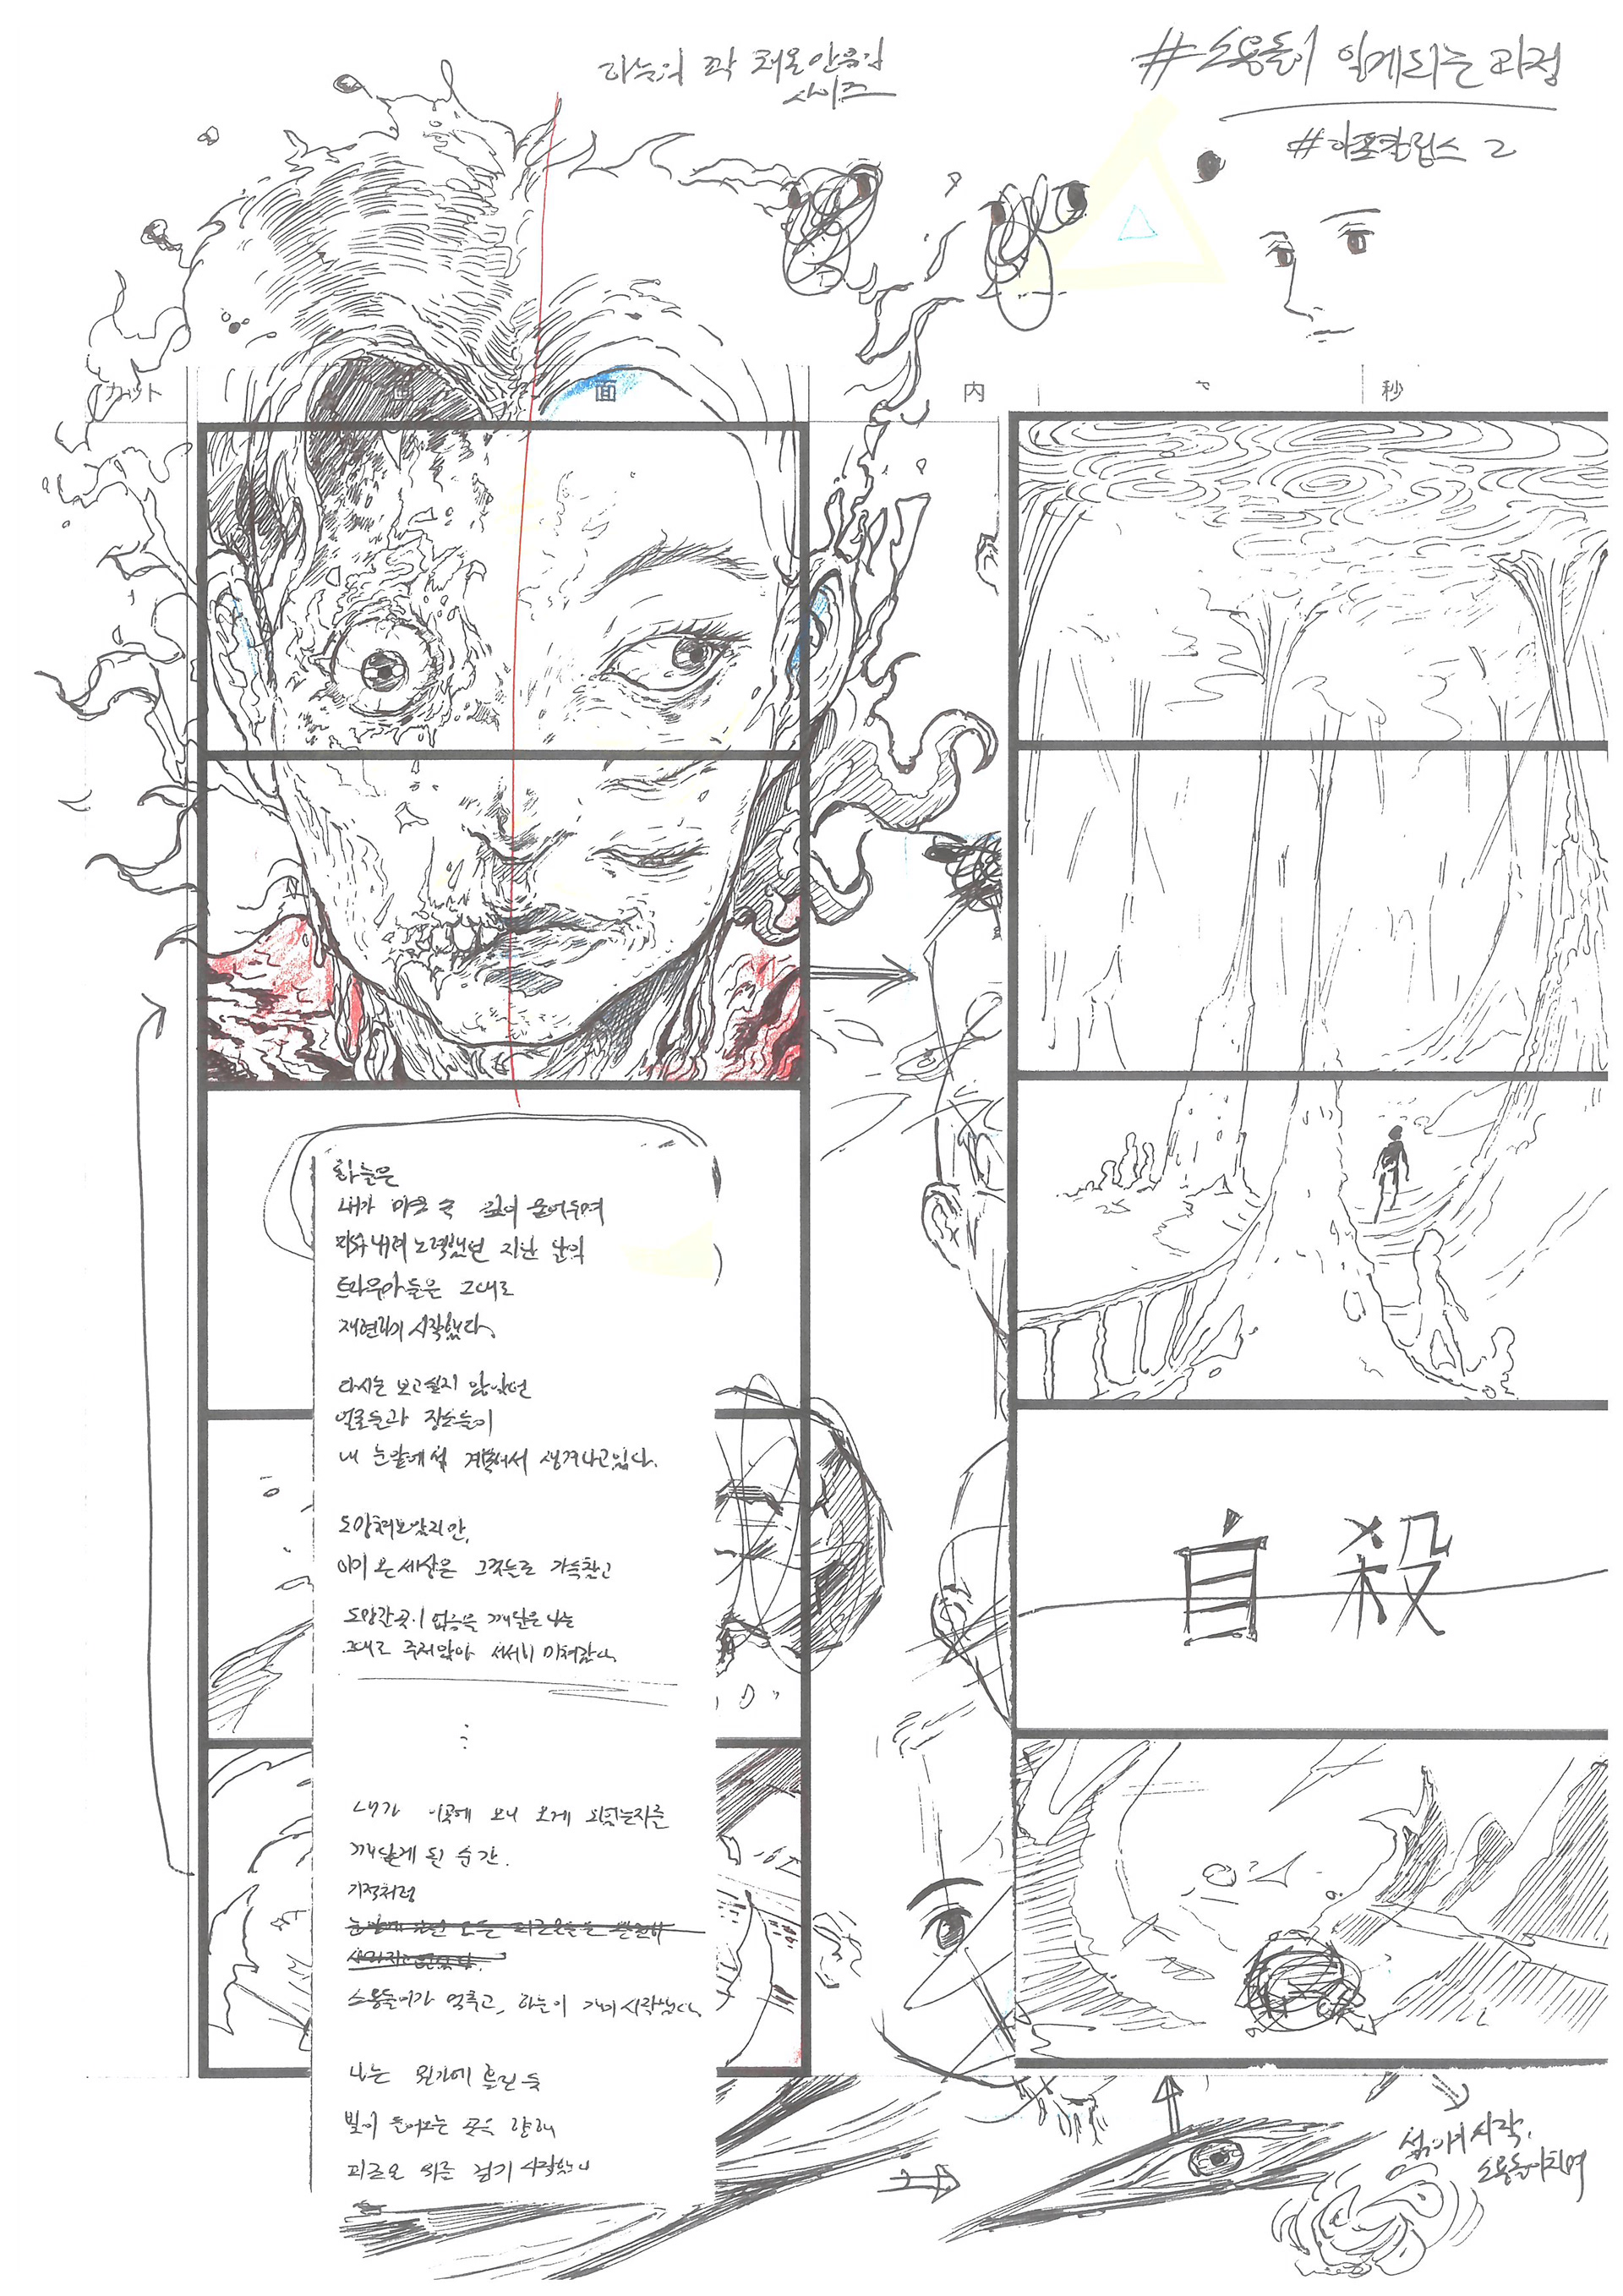 하늘의 꽉 채운 안움김
사이즈
#소용돌이 일게되는 과정
#아포칼립스 2
カット
画
面
内
秒
하늘은
내가 마음 속 깊이 묻어두며
노력했던 지난 날의
트라우마들은 그대로
재현되기 시작했다.
다시는 보고싶지 않았던
얼굴들과 장소들이
내 눈앞에서 계속해서 생겨나고있다.
도망쳐보았지만,
이미 온 세상은 그것들로 가득찼고
도망갈곳이 없음을 깨달은 나는
그대로 주저앉아 서서히 미쳐갔다.
내가 이곳에 오게 되었는지를
깨닫게 된 순간.
기적처럼
소용돌이가 멈추고, 하늘이 개기 시작했다.
나는 뭔가에 홀린 듯
빛이 들어오는 곳을 향해
걷기 시작했다
自殺
섞이기 시작.
소용돌이치며